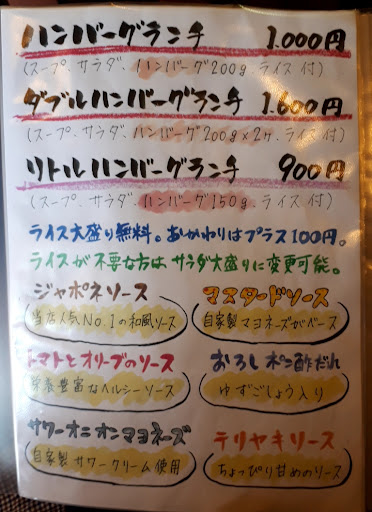 ハンバーグランチ 1.000円
(スープ、サラダ、ハンバーグ200g、ライス付)
ダブルハンバーグランチ 1.600円
(スープ、サラダ、ハンバーグ200g×2ヶ、ライス付)
リトルハンバーグランチ 900円
(スープ、サラダ、ハンバーグ150g、ライス付)
ライス大盛り無料。おかわりはプラス100円。
ライスが不要な方はサラダ大盛りに変更可能。
ジャポネソース
当店人気No.1の和風ソース
マスタードソース
自家製マヨネーズがベース
トマトとオリーブのソース
栄養豊富なヘルシーソース
おろしポン酢だれ
ゆずごしょう入り
サワーオニオンマヨネーズ
自家製サワークリーム使用
テリヤキソース
ちょっぴり甘めのソース